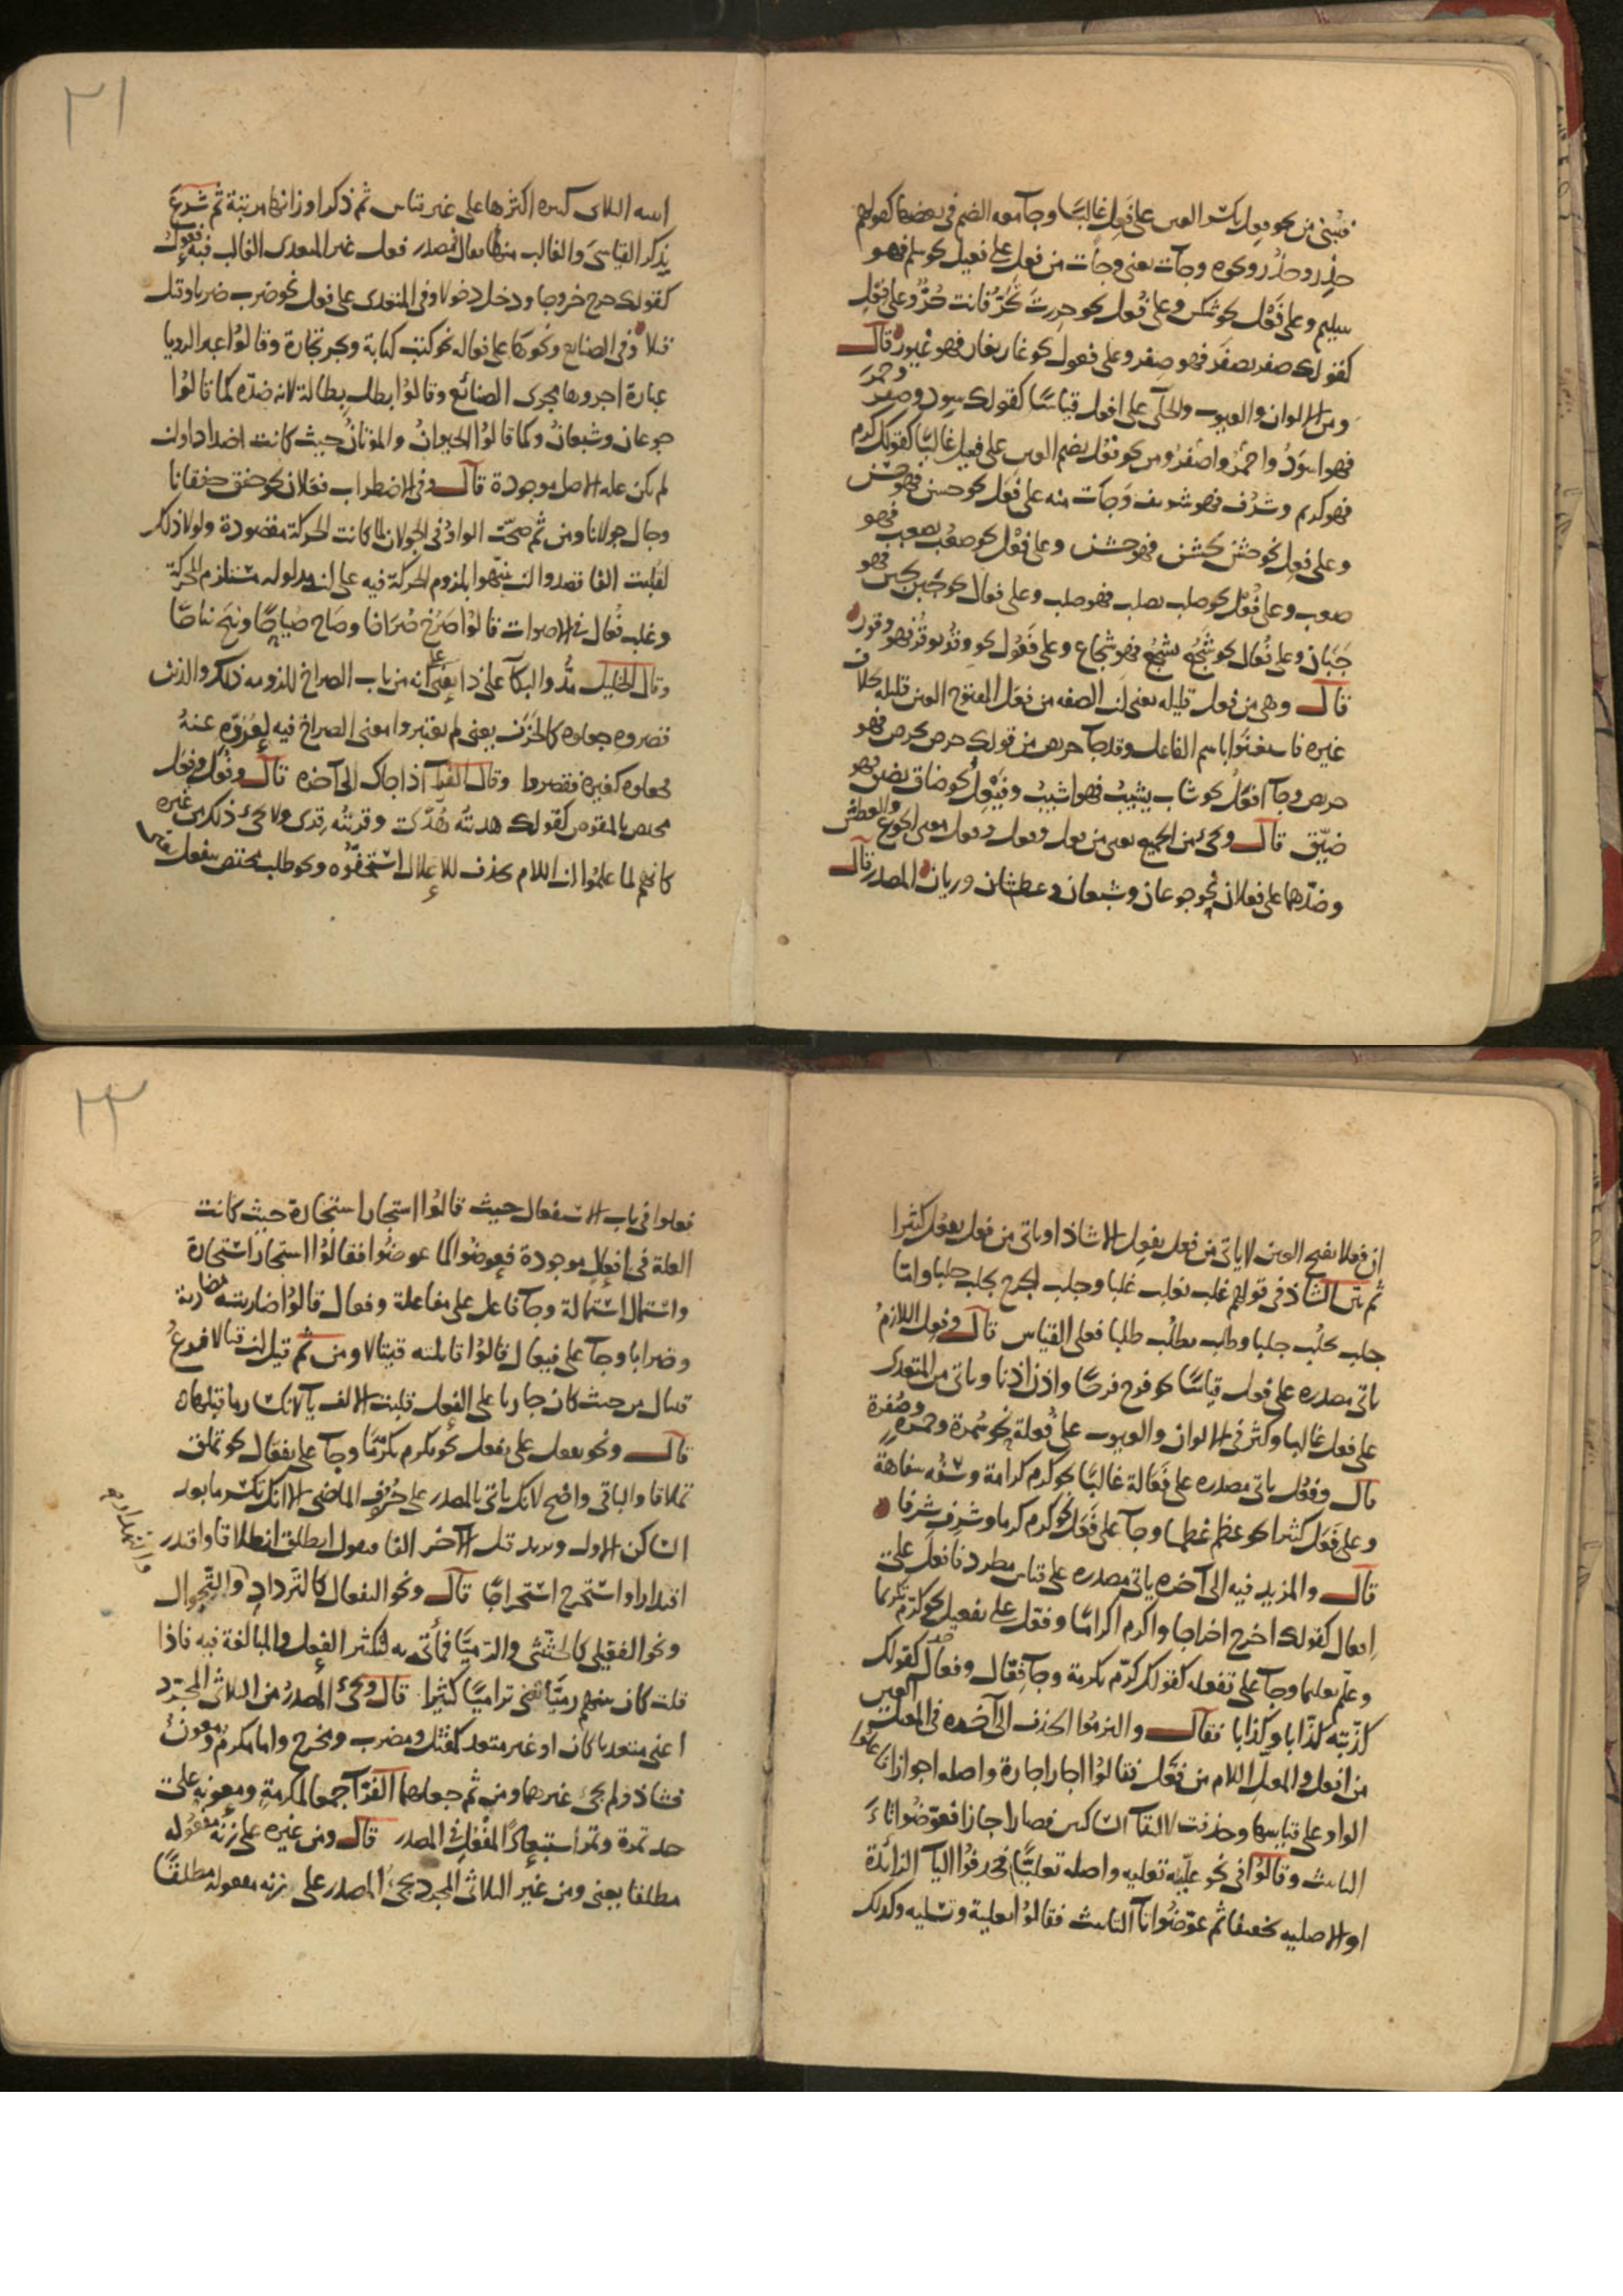 فتبنى من نحو فعِل بكسر العين على فَعِل غالبًا وجاء معه الضم في بعضها كقولهم
حذِر وحذُر ونحوه وجاءت يعني وجاءت من فعل على فعيل نحو سلم فهو
سليم وعلى فَعْل نحو شكس وعلى فُعل نحو حررت تحرّ فانت حُرّ وعلى فِعْل
كقولك صفر يصفر فهو صفر وعلى فعول نحو غار يغار فهو غيور قال
ومن الالوان والعيوب والحلى على افعل قياسًا كقولك سود وصفر وحمر
فهو اسوَدُ واحمَرُ واصفرُ ومن نحو فعُل بضم العين على فعيل غالبًا كقولك كرم
فهو كريم وشرُف فهو شريف وَجآت منه على فَعَل نحو حسن فهو حسن
وعلى فعِل نحو خشن يخشن فهو خشن وعلى فَعْل نحو صعُب يصعب فهو
صعب وعلى فُعْل نحو صلب يصلب فهو صلب وعلى فعال نحو جبن يجبن فهو
جَبَان وعلى فُعال نحو شجُع يشجُع فهو شجاع وعلى فَعُول نحو وقُر يوقُر فهو وقور
قال وهي من فعل قليله يعني ان الصفه من فعَل المفتوح العين قليله بخلاف
غيره فاستغنَوا باسم الفاعل وقد جآ حريص من قولك حرص يحرص فهو
حريص وجآ افعَل نحو شاب يشيبُ فهو اشيبُ وفَيْعِل نحو ضاق يضيق فهو
ضيّق قال ويجئ من الجميع يعني من فعل وفعل وفعل بمعنى الجوع والعطش
وضدّهما على فعلان نحو جوعان وشبعان وعطشان وريان المصدر قال
٢١
ابنيه الثلاثي كثيره اكثرها على غير قياس ثم ذكر اوزانها مرتبة ثم شرع
يذكر القياسيَ والغالب منها فقال فمصدر فعل غير المتعدى الغالب فيه فعول
كقولك خرج خروجا ودخل دخولا وفي المتعدى على فعل نحو ضرب ضربا وقتل
قتلا وفي الصنائع ونحوها على فعاله نحو كتب كتابة وتجر تجارة وقالوُا عبر الرويا
عبارة اجروها مجرى الصنائع وقالوُا بطل بِطالة لانه ضدّه كما قالوُا
جوعان وشبعانُ وكما قالوُا الحيوانُ والموتانُ حيث كانت اضدادا وان
لم يكن عله الاصل موجودة قال وفي الاضطراب فعلان نحو خفق خفقانا
وجال جولانا ومن ثم صحّت الواوُ في الجولان لما كانت الحركة مقصودة ولولا ذلك
لقلبت الفا قصدوا ان ينبّهوا بلزوم الحركة فيه على ان مدلوله مستلزم الحركة
وغلب فُعال في الاصوات قالوُا صَرَخ صُرَاخا وصَاح صُياحًا ونبَح نباحًا
وقال الخليل مدُّوا البكآ على ذا يعني على انه من باب الصراخ للزومه ذلك والذين
قصروه جعلوه كالحَزَن يعني لم يعتبروا معنى الصراخ فيه لعُزوّه عنهُ
فجعلوه كغيره فقصروا وقال الفرآ اذا جاك الى آخره قال وفُعَل وفِعَل
مختص بالمنقوص كقولك هديتُه هُدًى وقريتُه قِرى ولا يجئ ذلك من غيره
كانهم لما علمُوا ان اللام تحذف للاعلال استخفّوه ونحو طلب مختص بيفعل
ان فعلا بفتح العين لا ياتى من فعل يفعِل الا شاذا وياتى من فعل يفعُل كثيرا
ثم بيّن الشاذ في قولهم غلب يغلب غلبا وجلب الجرح يجلب جلبا وامّا
جلب يجلُب جلبا وطلب يطلُب طلبا فعلى القياس قال وفعِل اللازمُ
ياتى مصدره على فعل قياسًا نحو فرح فرحًا واذن اذنا وياتى من المتعدى
على فعل غالبا وكثر في الالوان والعيوب على فُعلة نحو سُمرة وحمرة وصُفرة
قال وفعُل ياتى مصدره على فَعَالة غالبًا نحو كرم كرامة وسفُه سفاهة
وعلى فِعَل كثيرا نحو عظم عِظما وجآ على فَعَل نحو كرم كرما وشرف شرفا
قال والمزيد فيه الى آخره ياتى مصدره على قياس مطرد فافعل على
افعال كقولك اخرج اخراجا واكرم اكرامًا وفعّل على تفعيل نحو كرّم تكريما
وعلّم تعليما وجآ على تفعله كقولك كرّم تكرمة وجآ فِعّال وفعال كقولك
كذّبته كذّابا وكِذابا فقال والتزمُوا الحذف الى آخره في المعل العين
من افعل والمعل اللام من فعّل فقالوُا اجار اجارة واصله اجوازا
الواو على قياسها وحذفت لالتقآ الساكنين فصار اجازا فعوّضُوا تاءَ
التانيث وقالوُا في نحو علّيته تعليه واصله تعليًّا فحذفُوا اليآ الزائدة
او الاصليه تخفيفا ثم عوّضُوا تآ التانيث فقالوُا تعلية وتسليه وكذلك
٢٢
فعلوا في باب الاستفعال حيث قالوُا استجار استجارة حيث كانت
العلة في افعل موجودة فعوضُوا كما عوضُوا فقالوُا استجار استجارة
واستمال استمالة وجآ فاعل على مفاعلة وفعال قالوُا ضاربته مضاربة
وضرابا وجآ على فيعال قالوُا قاتلته قيتالا ومن ثم قيل ان قتالا فرعُ
قيتال من حيث كان جاريا على الفعل قلبت الالف يآ لانكسار ما قبلها
قال ونحو تفعل على تفعل نحو تكرم تكرّمًا وجآ على تفعّال نحو تملق
تملاقا والباقى واضح لانك ياتى بالمصدر على حروف الماضى الا انك تكسر ما بعد
الساكن الاول وتزيد قبل الآخر الفا فتقول انطلق انطلاقا واقتدر
اقتدارا واستخرج استخراجًا قال ونحو التفعال كالتَّرداد والتَّجوال
ونحو الفعّيلى كالحثّيثى والرّميّا فيأتى به لتكثير الفعل والمبالغة فيه فاذا
قلت كان بينهم رميّا تعنى تراميًا كثيرا قال ويجئ المصدرُ من الثلاثى المجرد
اعنى متعديا كان او غير متعد كمقتَل ومضرب ومخرج واما مكرم ومعون
فشاذ ولم يجئ غيرهما ومن ثم جعلهما الفرّآ جمعا لمكرمةٍ ومعونة على
حد تمرة وتمر استبعادًا لمفعُل في المصدر قال ومن غيره على زنة مفعُوله
مطلقا يعنى ومن غير الثلاثى المجرد يجئ المصدر على زنه مفعوله مطلقًا